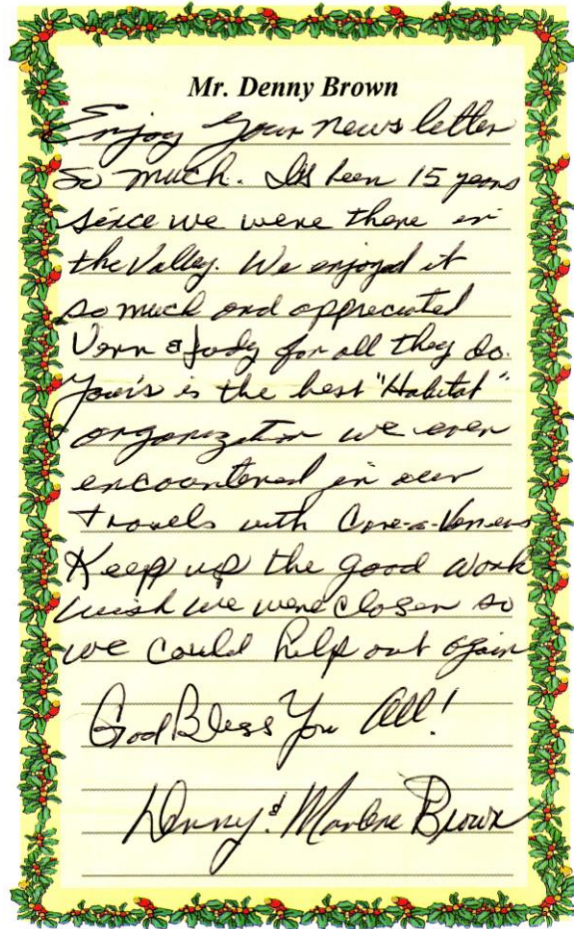 Mr. Denny Brown
Enjoy your news letter
so much. Its been 15 years
since we were there in
the Valley. We enjoyed it
so much and appreciated
Vern & Judy for all they do.
Your's is the best "Habitat"
organization we ever
encountered in our
travels with Care-a-Vaners
Keep up the good work
wish we were closer so
we could help out again
God Bless You All!
Denny & Marlene Brown